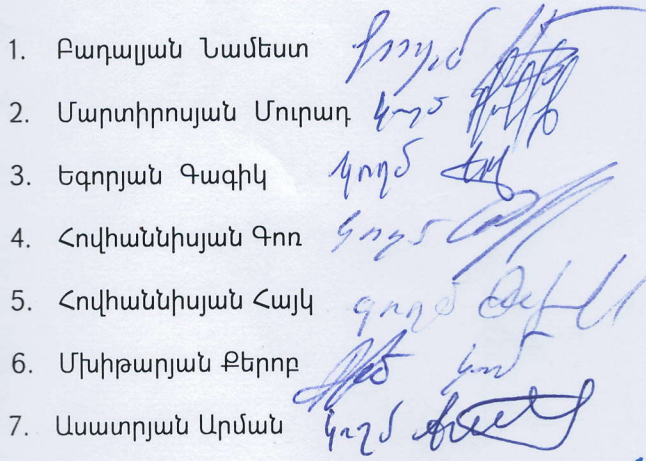 1. Բադալյան Նամեստ
2. Մարտիրոսյան Մուրադ կողմ
3. Եգորյան Գագիկ կողմ
4. Հովհաննիսյան Գոռ կողմ
5. Հովհաննիսյան Հայկ կողմ
6. Մխիթարյան Քերոբ
7. Ասատրյան Արման կողմ